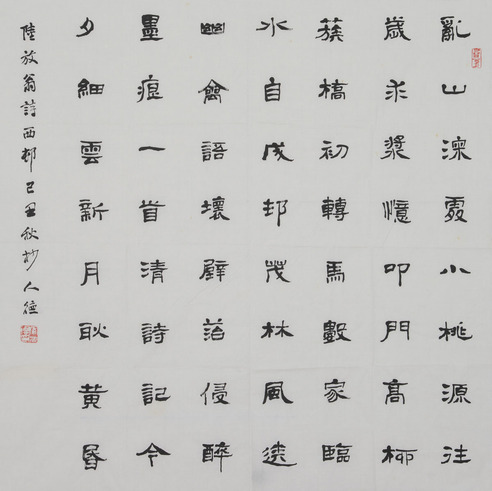 亂山深處小桃源往
歲求漿憶叩門高柳
簇橋初轉馬數家臨
水自成邨茂林風送
幽禽語壞壁苔侵醉
墨痕一首清詩記今
夕細雲新月耿黃昏
陸放翁詩西邨己丑秋抄人德